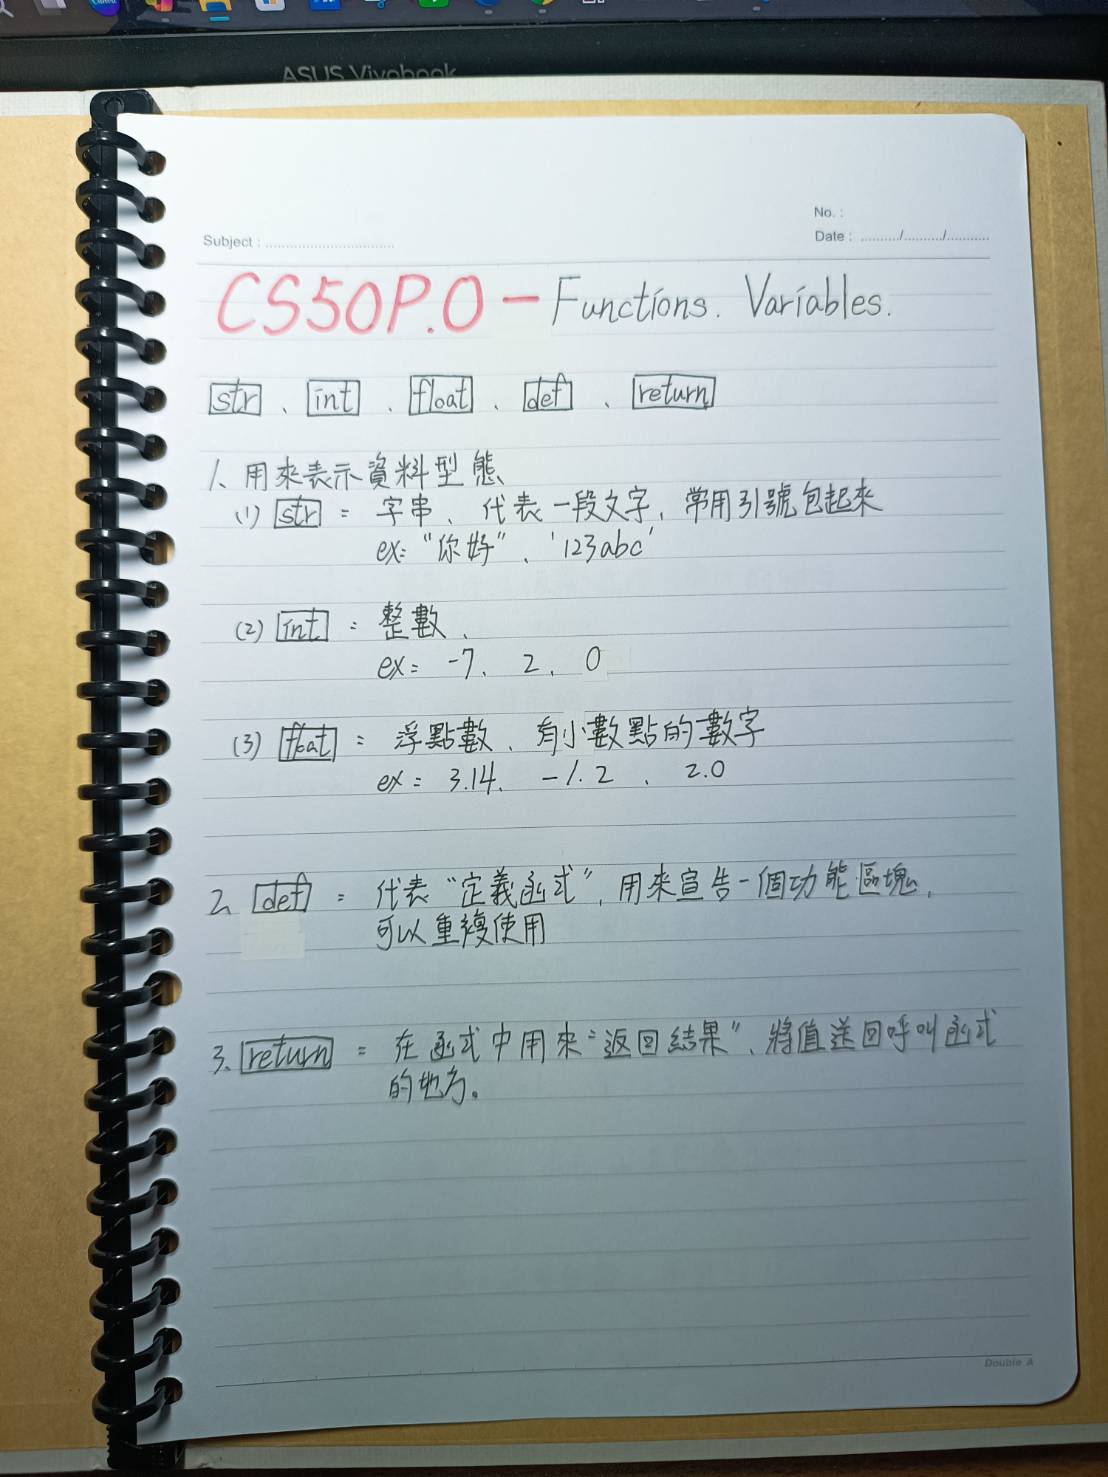 ASUS Vivobook
No. :
Subject : ................................
Date : ........../........../...........
CS50P.0 - Functions. Variables.
str、int、float、def、return
1、用來表示資料型態
(1) str : 字串、代表一段文字，常用引號包起來
ex: "你好"、'123abc'
(2) int : 整數、
ex: -7、2、0
(3) float : 浮點數、有小數點的數字
ex: 3.14、-1.2、2.0
2、def : 代表"定義函式"，用來宣告一個功能區塊，
可以重複使用
3、return : 在函式中用來"返回結果"、將值送回呼叫函式
的地方。
Double A